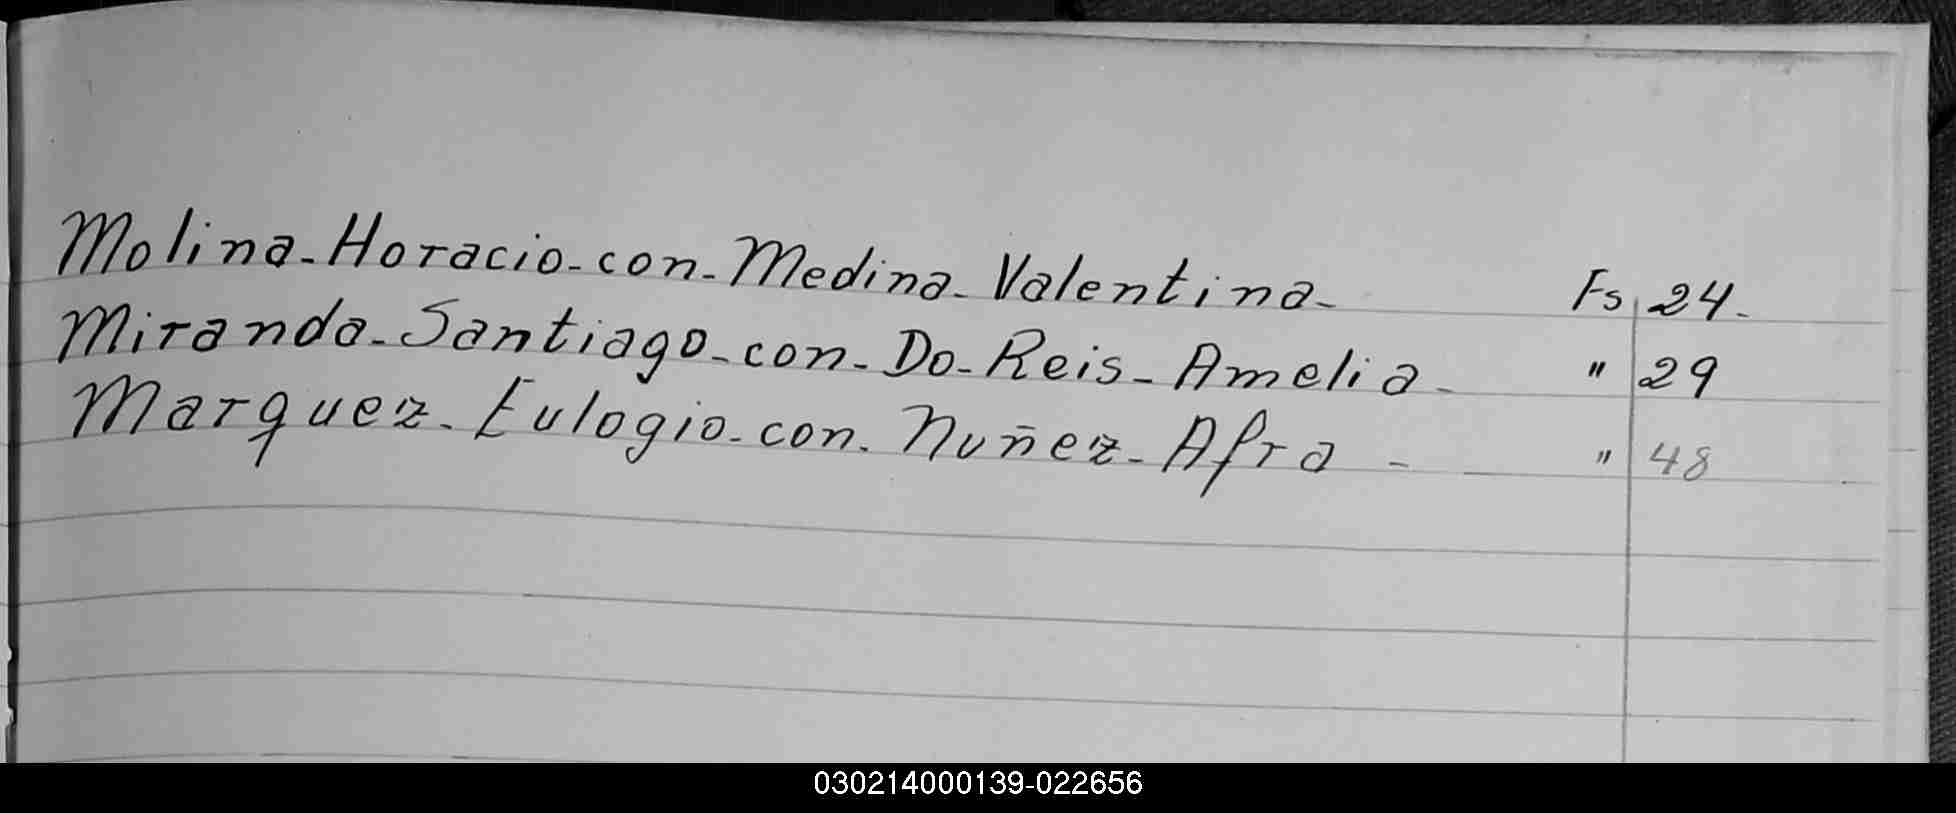 Molina-Horacio-con-Medina-Valentina- Fs 24-
Miranda-Santiago-con-Do-Reis-Amelia- " 29
Marquez-Eulogio-con-Nuñez-Afra - " 48
030214000139-022656